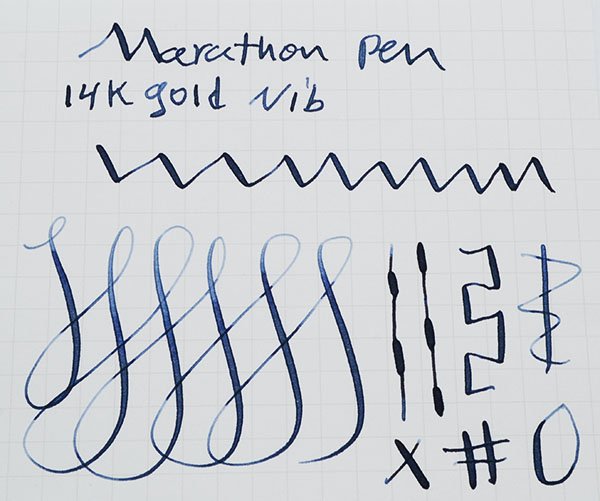 Marathon Pen
14K gold Nib
X # 0